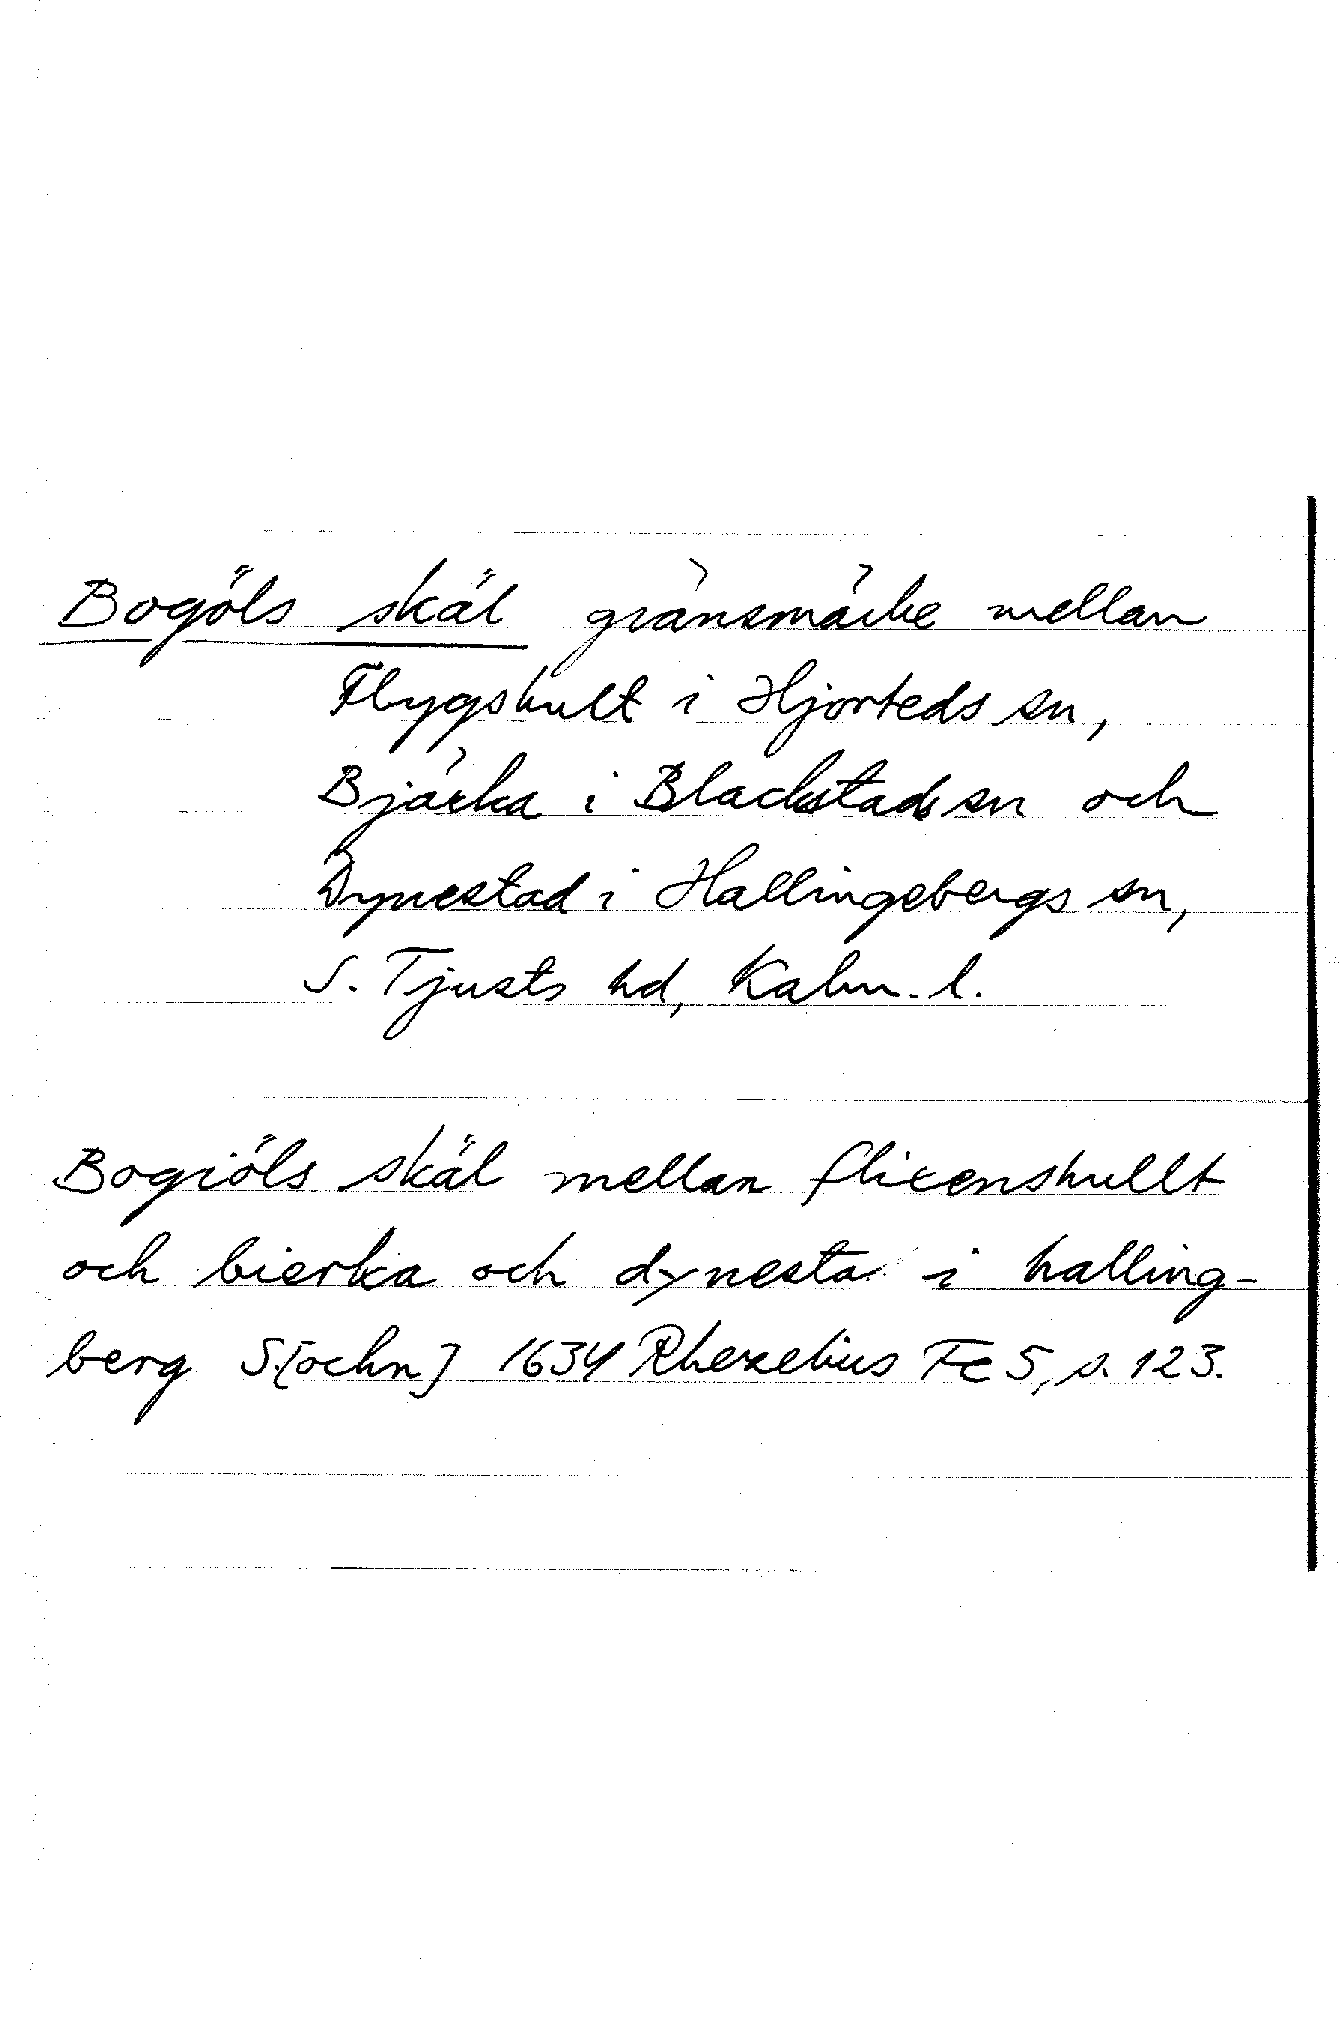 Bogöls skäl gränsmärke mellan
Flygshult i Hjorteds sn,
Bjärka i Blackstads sn och
Dynestad i Hallingebergs sn,
S. Tjusts hd, Kalm. l.
Bogiöls skäl mellan flixenshullt
och bierka och dynesta i halling-
berg S[ochn] 1634 Rhezelius Fc 5, s. 123.